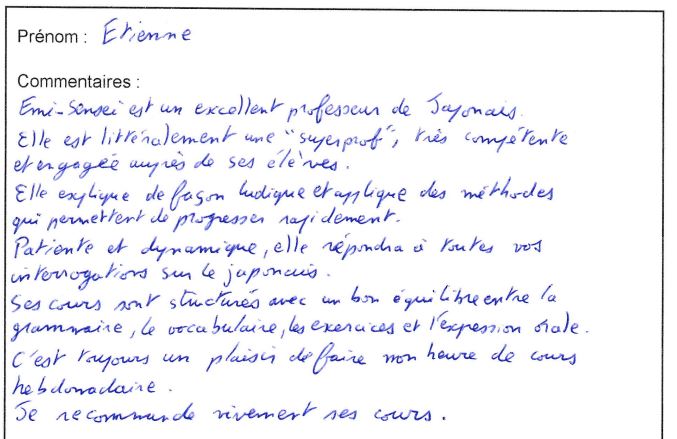 Prénom : Etienne
Commentaires :
Emi-Sensei est un excellent professeur de Japonais.
Elle est littéralement une "superprof", très compétente
et engagée auprès de ses élèves.
Elle explique de façon ludique et applique des méthodes
qui permettent de progresser rapidement.
Patiente et dynamique, elle répondra à toutes vos
interrogations sur le japonais.
Ses cours sont structurés avec un bon équilibre entre la
grammaire, le vocabulaire, les exercices et l'expression orale.
C'est toujours un plaisir de faire mon heure de cours
hebdomadaire.
Je recommande vivement ses cours.